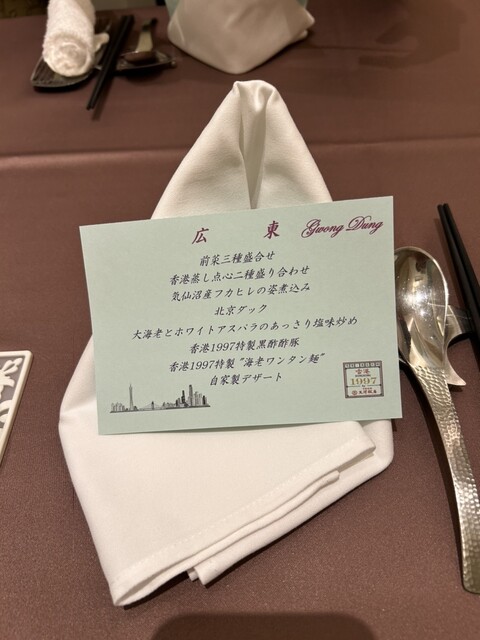 広 東 Gwong Dung
前菜三種盛合せ
香港蒸し点心二種盛り合わせ
気仙沼産フカヒレの姿煮込み
北京ダック
大海老とホワイトアスパラのあっさり塩味炒め
香港1997特製黒酢酢豚
香港1997特製 "海老ワンタン麺"
自家製デザート
香港
1997